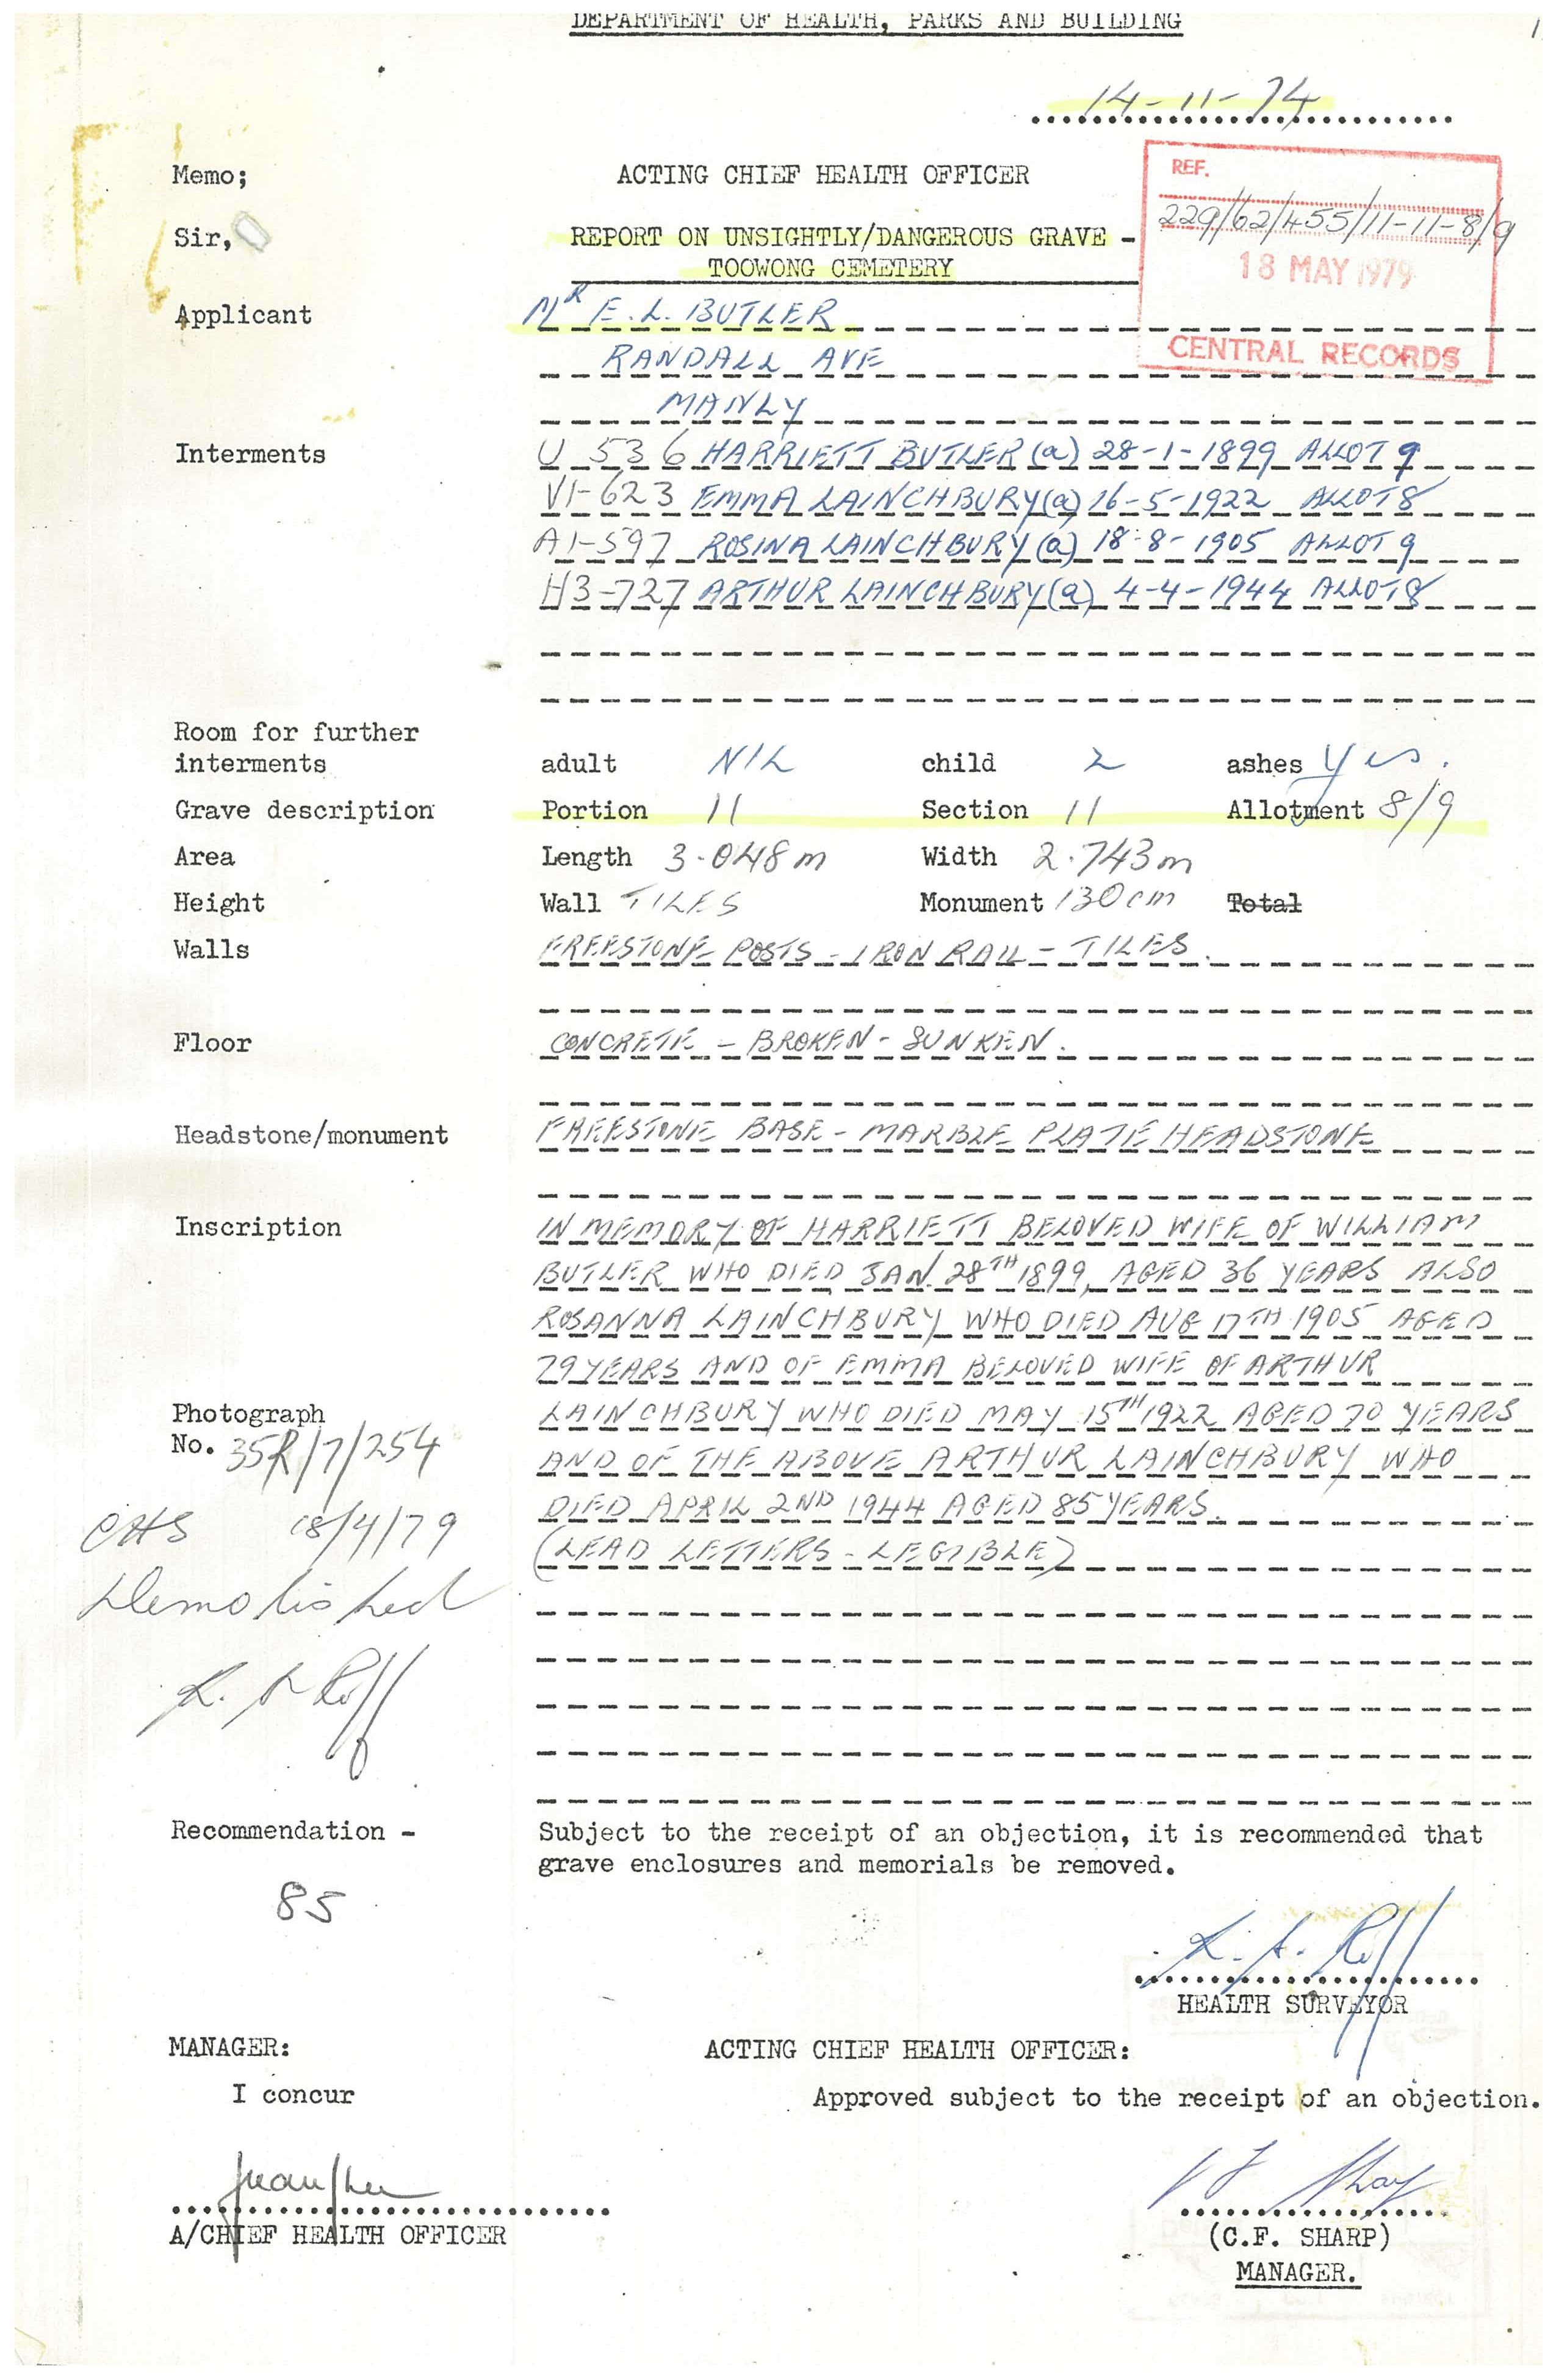 DEPARTMENT OF HEALTH, PARKS AND BUILDING
14-11-74
Memo; ACTING CHIEF HEALTH OFFICER
REF.
229/62/455/11-11-8/9
18 MAY 1979
CENTRAL RECORDS
Sir, REPORT ON UNSIGHTLY/DANGEROUS GRAVE -
TOOWONG CEMETERY
Applicant MR E.L. BUTLER
RANDALL AVE
MANLY
Interments U 536 HARRIETT BUTLER (a) 28-1-1899 ALLOT 9
V1-623 EMMA LAINCHBURY (a) 16-5-1922 ALLOT 8
A1-597 ROSINA LAINCHBURY (a) 18-8-1905 ALLOT 9
H3-727 ARTHUR LAINCHBURY (a) 4-4-1944 ALLOT 8
Room for further
interments adult NIL child 2 ashes Yes.
Grave description Portion 11 Section 11 Allotment 8/9
Area Length 3.048m Width 2.743m
Height Wall TILES Monument 130cm Total
Walls FREESTONE POSTS - IRON RAIL - TILES.
Floor CONCRETE - BROKEN - SUNKEN.
Headstone/monument FREESTONE BASE - MARBLE PLATE HEADSTONE
Inscription IN MEMORY OF HARRIETT BELOVED WIFE OF WILLIAM
BUTLER WHO DIED JAN. 28TH 1899, AGED 36 YEARS ALSO
ROSANNA LAINCHBURY WHO DIED AUG 17TH 1905 AGED
79 YEARS AND OF EMMA BELOVED WIFE OF ARTHUR
LAINCHBURY WHO DIED MAY 15TH 1922 AGED 70 YEARS
AND OF THE ABOVE ARTHUR LAINCHBURY WHO
DIED APRIL 2ND 1944 AGED 85 YEARS.
(LEAD LETTERS - LEGIBLE)
Photograph
No. 35R/7/254
CHS 18/4/79
Demolished
Recommendation - Subject to the receipt of an objection, it is recommended that
grave enclosures and memorials be removed.
85
HEALTH SURVEYOR
MANAGER: ACTING CHIEF HEALTH OFFICER:
I concur Approved subject to the receipt of an objection.
A/CHIEF HEALTH OFFICER (C.F. SHARP)
MANAGER.